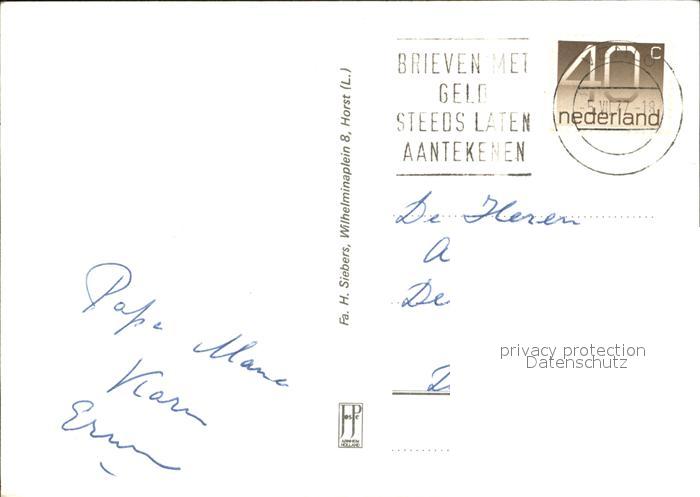 BRIEVEN MET
GELD
STEEDS LATEN
AANTEKENEN
40 c
nederland
-5.VII.77.-18
Fa. H. Siebers, Wilhelminaplein 8, Horst (L.)
De Heren
A
De
D
privacy protection
Datenschutz
Papa Mama
Karin
Erwin
JosPe
ARNHEM
HOLLAND